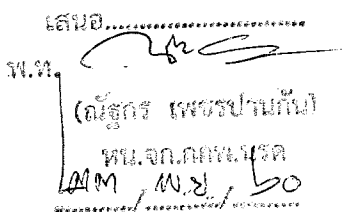 เสนอ....................
พ.ท.
(ณัฐกร เพชรปานกัน)
หน.จก.กกพ.นรด
/ พ.ย / ๖๐